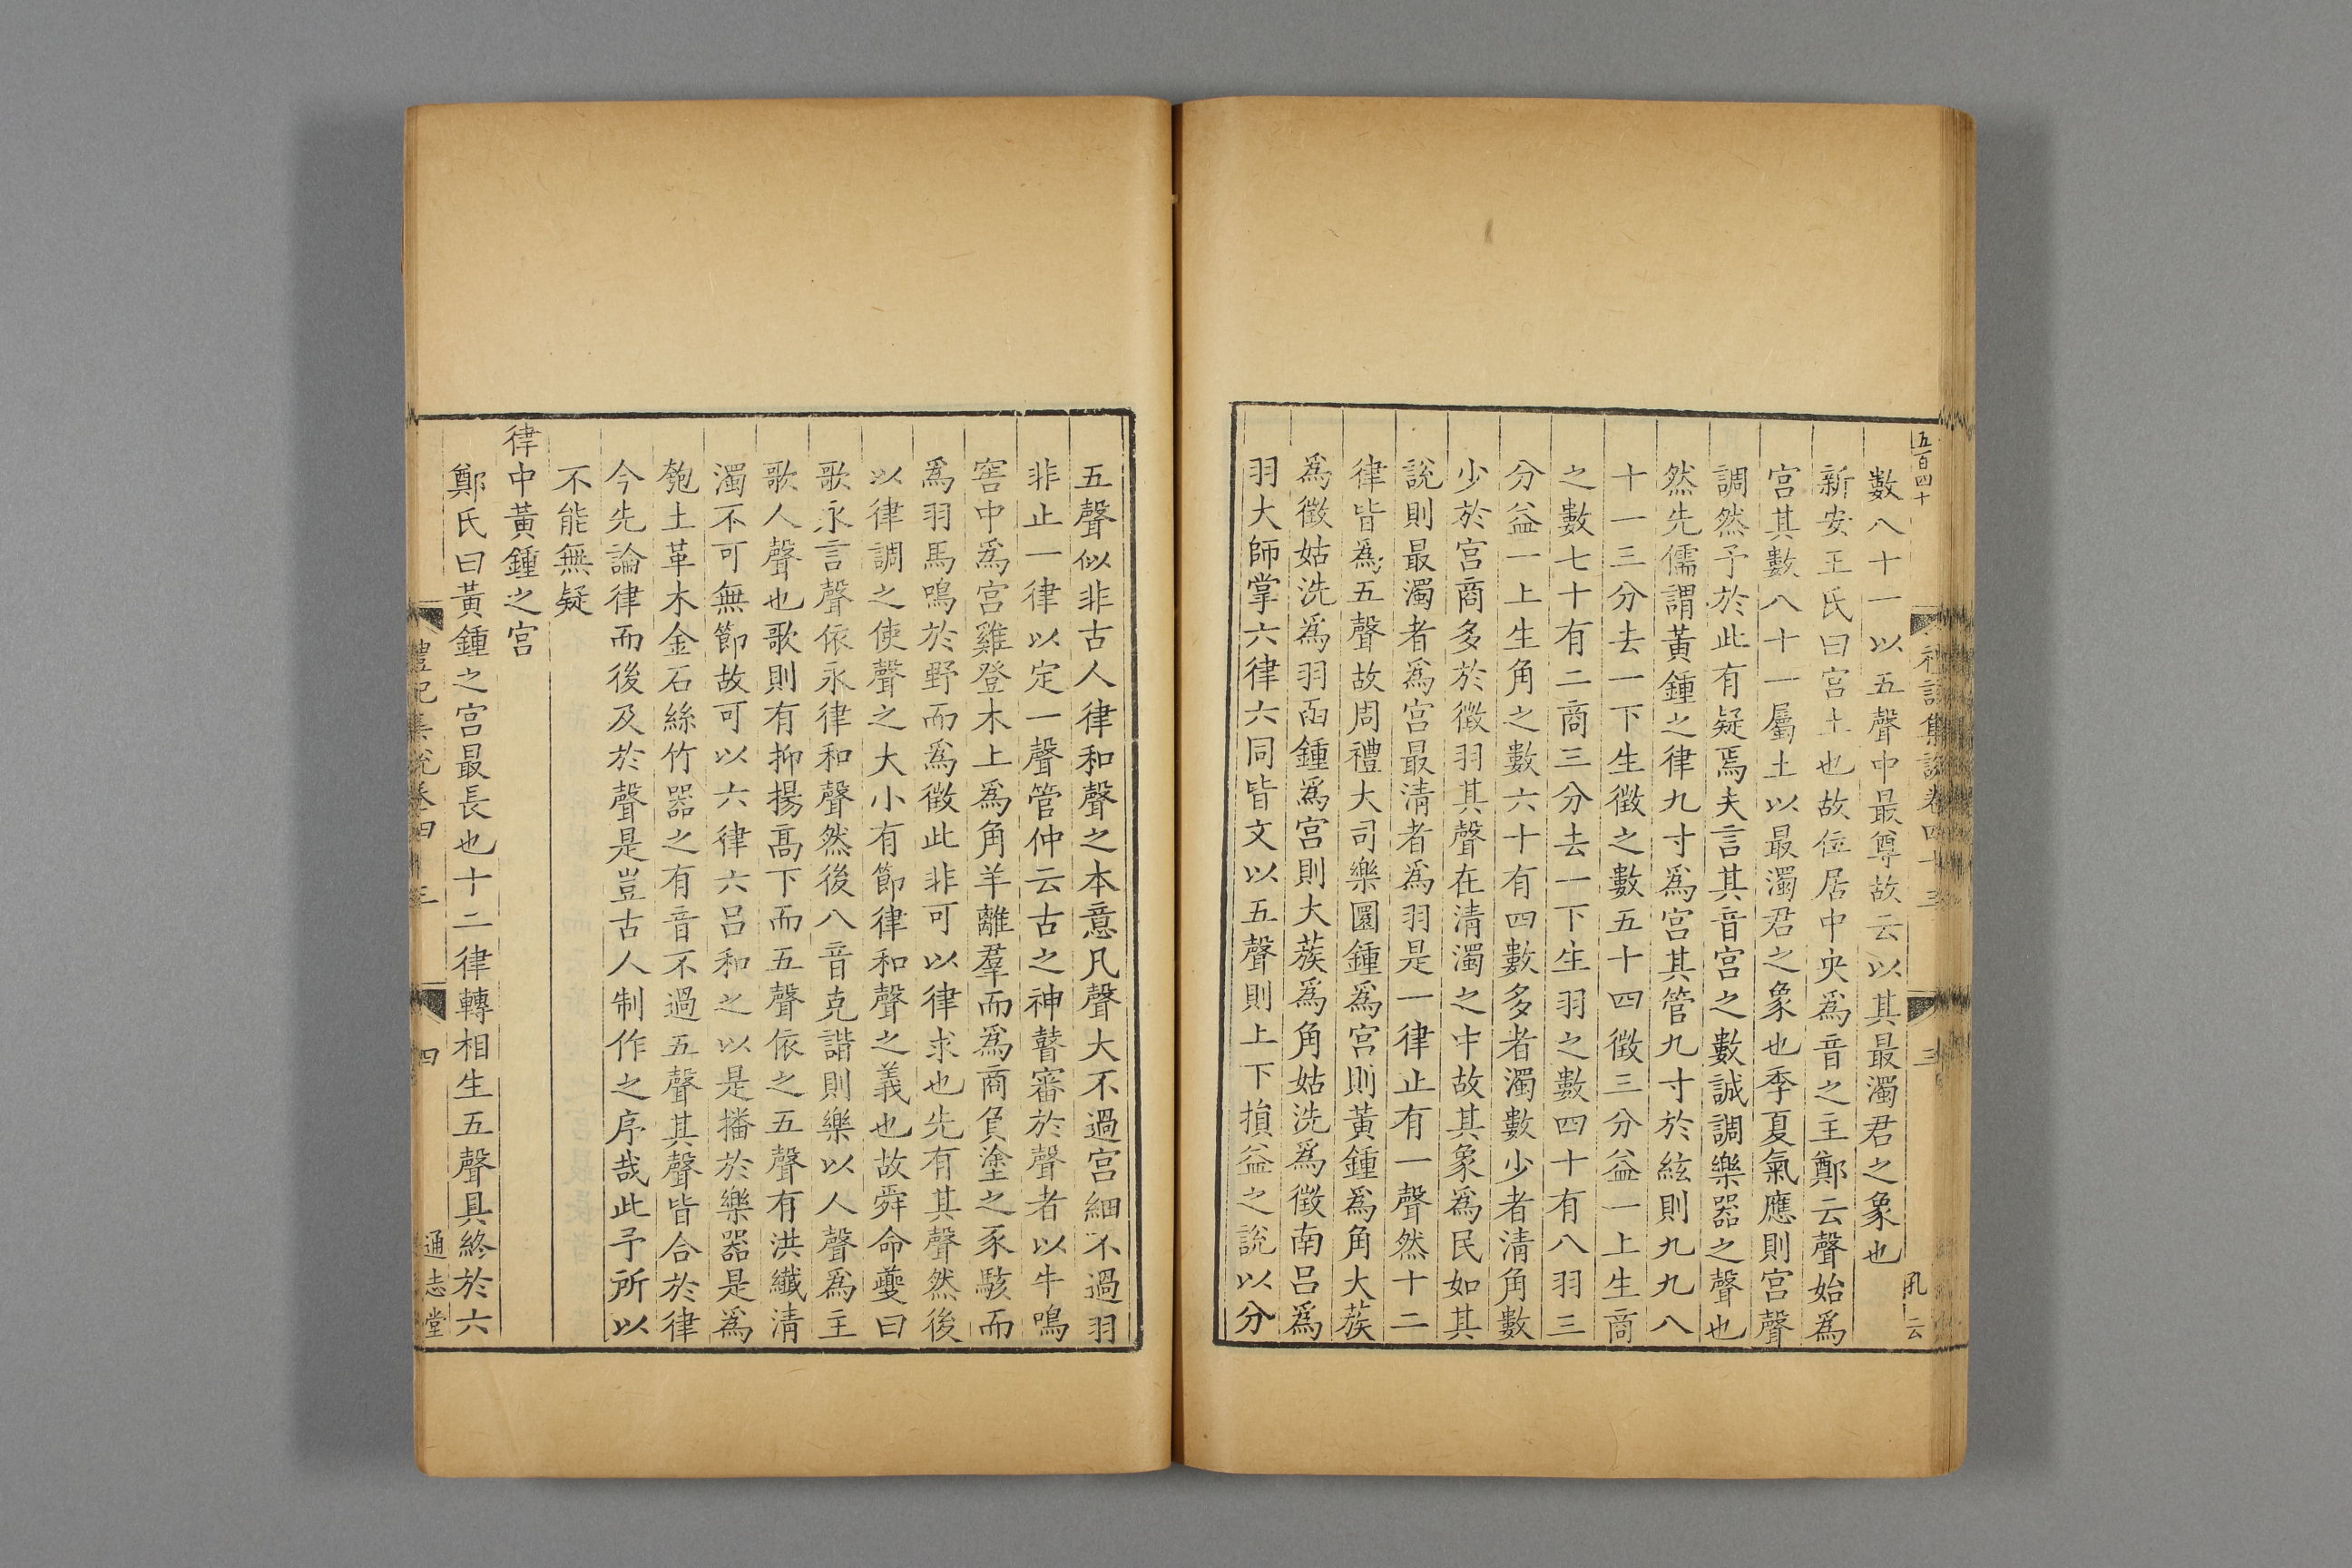 五百四十
禮記集說卷四十三
三
孔云
數八十一以五聲中最尊故云以其最濁君之象也
新安王氏曰宮土也故位居中央為音之主鄭云聲始為
宮其數八十一屬土以最濁君之象也季夏氣應則宮聲
調然予於此有疑焉夫言其音宮之數誠調樂器之聲也
然先儒謂黃鍾之律九寸為宮其管九寸於絃則九九八
十一三分去一下生徵之數五十四徵三分益一上生商
之數七十有二商三分去一下生羽之數四十有八羽三
分益一上生角之數六十有四數多者濁數少者清角數
少於宮商多於徵羽其聲在清濁之中故其象為民如其
說則最濁者為宮最清者為羽是一律止有一聲然十二
律皆為五聲故周禮大司樂圜鍾為宮則黃鍾為角大蔟
為徵姑洗為羽函鍾為宮則大蔟為角姑洗為徵南呂為
羽大師掌六律六同皆文以五聲則上下損益之說以分
五聲似非古人律和聲之本意凡聲大不過宮細不過羽
非止一律以定一聲管仲云古之神瞽審於聲者以牛鳴
窖中為宮雞登木上為角羊離羣而為商負塗之豕駭而
為羽馬鳴於野而為徵此非可以律求也先有其聲然後
以律調之使聲之大小有節律和聲之義也故舜命夔曰
歌永言聲依永律和聲然後八音克諧則樂以人聲為主
歌人聲也歌則有抑揚高下而五聲依之五聲有洪纖清
濁不可無節故可以六律六呂和之以是播於樂器是為
匏土革木金石絲竹器之有音不過五聲其聲皆合於律
今先論律而後及於聲是豈古人制作之序哉此予所以
不能無疑
律中黃鍾之宮
鄭氏曰黃鍾之宮最長也十二律轉相生五聲具終於六
禮記集說卷四十三
四
通志堂